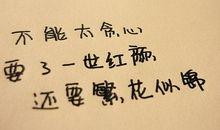 不能太贪心
要了一世红颜
还要繁花似锦